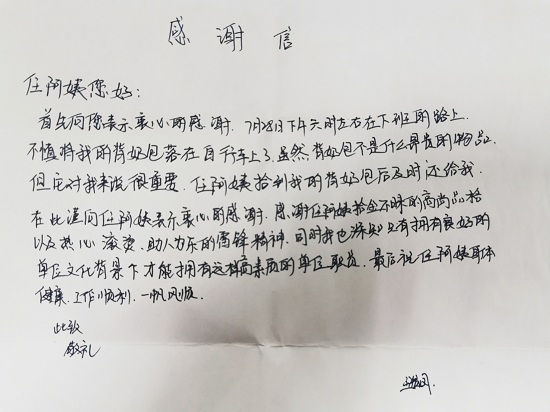 感谢信
任阿姨您好:
首先向您表示衷心的感谢. 7月28日下午六时左右在下班的路上.
不慎将我的背奶包落在自行车上了.虽然背奶包不是什么昂贵的物品.
但它对我来说很重要. 任阿姨拾到我的背奶包后及时还给我.
在此谨向任阿姨表示衷心的感谢. 感谢任阿姨拾金不昧的高尚品格
以及热心滚烫、助人为乐的雷锋精神. 同时我也深知只有拥有良好的
单位文化背景下才能拥有这样高素质的单位职员. 最后祝任阿姨身体
健康.工作顺利.一帆风顺.
此致
敬礼